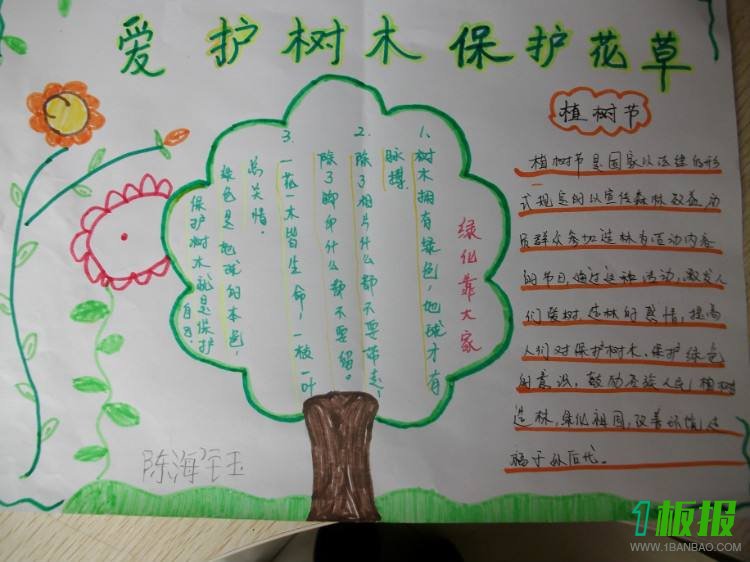 爱护树木 保护花草
绿化靠大家
1、树木拥有绿色,地球才有
脉搏。
2、除了相片什么都不要带走,
除了脚印什么都不要留。
3、一花一木皆生命,一枝一叶
总关情。
绿色是地球的本色,
保护树木就是保护
自己。
植树节
植树节是国家以法律的形
式规定的以宣传森林效益,动
员群众参加造林为活动内容
的节日,通过这种活动,激发人
们爱树、造林的感情,提高
人们对保护树木,保护绿色
的意识,鼓励各族人民,植树
造林,绿化祖国,改善环境,造
福子孙后代。
陈海 玉
1板报
WWW.1BANBAO.COM